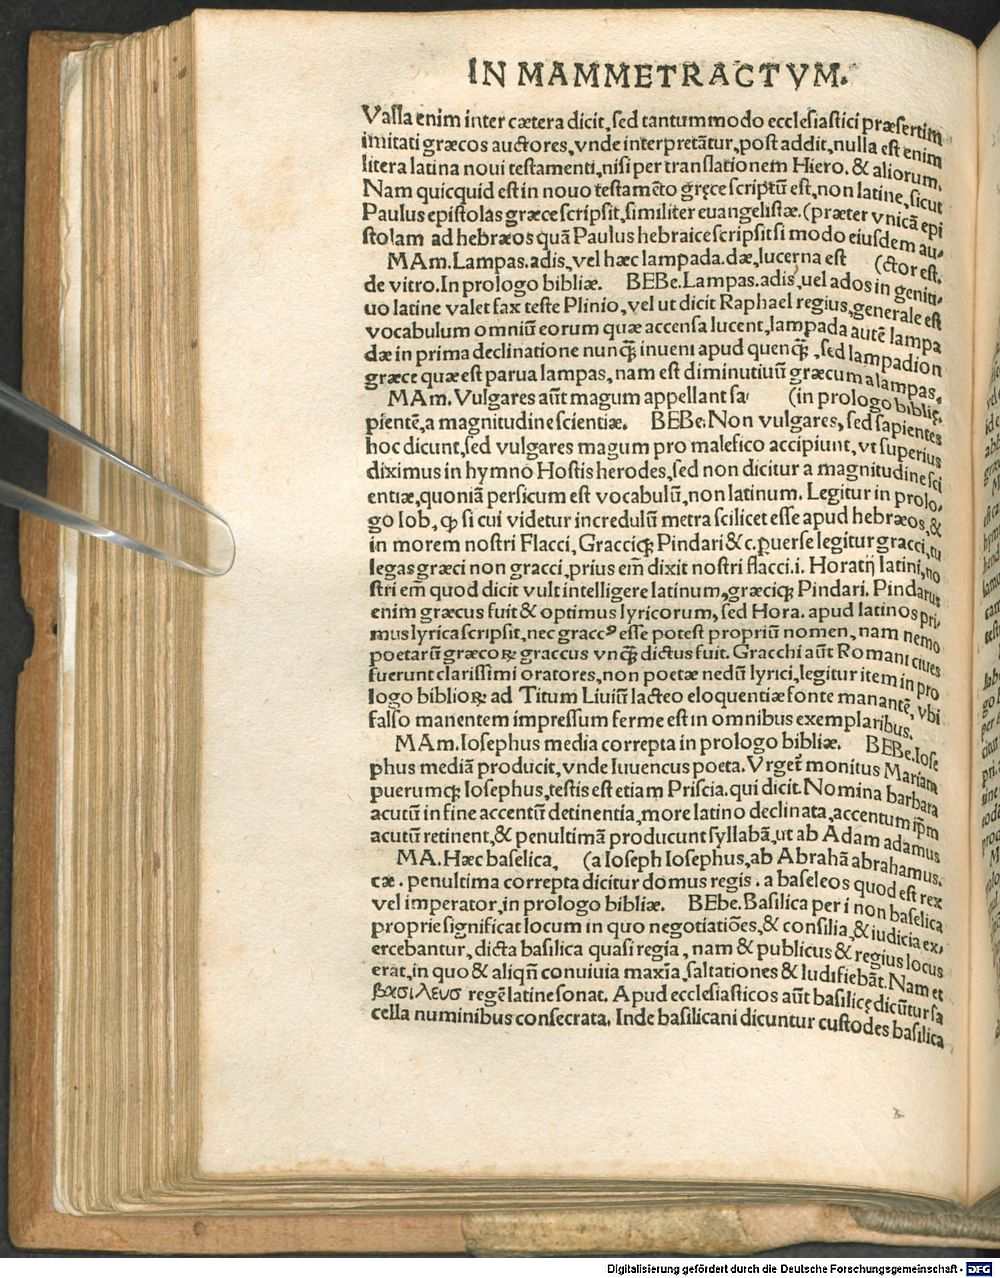 IN MAMMETRACTVM.
Valla enim inter cætera dicit, sed tantummodo ecclesiastici præsertim
imitati græcos auctores, vnde interpretãtur, post addit, nulla est enim
litera latina noui testamenti, nisi per translationem Hiero. & aliorum.
Nam quicquid est in nouo testamẽto gręce scriptũ est, non latine, sicut
Paulus epistolas græce scripsit, similiter euangelistæ. (præter vnicã epi
stolam ad hebræos quã Paulus hebraice scripsit si modo eiusdem au-
MAm. Lampas.adis, vel hæc lampada.dæ, lucerna est (ctor est.
de vitro. In prologo bibliæ. BEBe. Lampas.adis, uel ados in geniti-
uo latine valet fax teste Plinio, vel ut dicit Raphael regius, generale est
vocabulum omniũ eorum quæ accensa lucent, lampada autẽ lampa
dæ in prima declinatione nunꝗ̃ inueni apud quenꝗ̃, sed lampadion
græce quæ est parua lampas, nam est diminutiuũ græcum a lampas.
MAm. Vulgares aũt magum appellant sa- (in prologo biblię.
pientẽ, a magnitudine scientiæ. BEBe. Non vulgares, sed sapientes
hoc dicunt, sed vulgares magum pro malefico accipiunt, vt superius
diximus in hymno Hostis herodes, sed non dicitur a magnitudine sci
entiæ, quoniã persicum est vocabulũ, non latinum. Legitur in prolo-
go Iob, ꝙ si cui videtur incredulũ metra scilicet esse apud hebræos, &
in morem nostri Flacci, Gracciqꝫ Pindari & c. ꝑuerse legitur gracci, tu
legas græci non gracci, prius em̃ dixit nostri flacci.i. Horatij latini, no
stri em̃ quod dicit vult intelligere latinum, græciqꝫ Pindari. Pindarus
enim græcus fuit & optimus lyricorum, sed Hora. apud latinos pri-
mus lyrica scripsit, nec graccꝰ esse potest propriũ nomen, nam nemo
poetarũ græcoꝝ graccus vnꝗ̃ dictus fuit. Gracchi aũt Romani ciues
fuerunt clarissimi oratores, non poetæ nedũ lyrici, legitur item in pro
logo biblioꝝ ad Titum Liuiũ lacteo eloquentiæ fonte manantẽ, vbi
falso manentem impressum ferme est in omnibus exemplaribus.
MAm. Iosephus media correpta in prologo bibliæ. BEBe. Iose
phus mediã producit, vnde Iuuencus poeta. Vrget̃ monitus Mariam
puerumqꝫ Iosephus, testis est etiam Priscia. qui dicit. Nomina barbara
acutũ in fine accentũ detinentia, more latino declinata, accentum ip̃m
acutũ retinent, & penultimã producunt syllabã, ut ab Adam adamus
MA. Hæc baselica, (a Ioseph Iosephus, ab Abrahã abrahamus.
cæ. penultima correpta dicitur domus regis. a baseleos quod est rex
vel imperator, in prologo bibliæ. BEbe. Basilica per i non baselica
proprie significat locum in quo negotiatiões, & consilia, & iudicia ex-
ercebantur, dicta basilica quasi regia, nam & publicus & regius locus
erat, in quo & aliqñ conuiuia maxĩa, saltationes & ludi fiebãt. Nam et
βασιλευσ regẽ latine sonat. Apud ecclesiasticos aũt basilicę dicũtur sa
cella numinibus consecrata. Inde basilicani dicuntur custodes basilica
Digitalisierung gefördert durch die Deutsche Forschungsgemeinschaft - DFG